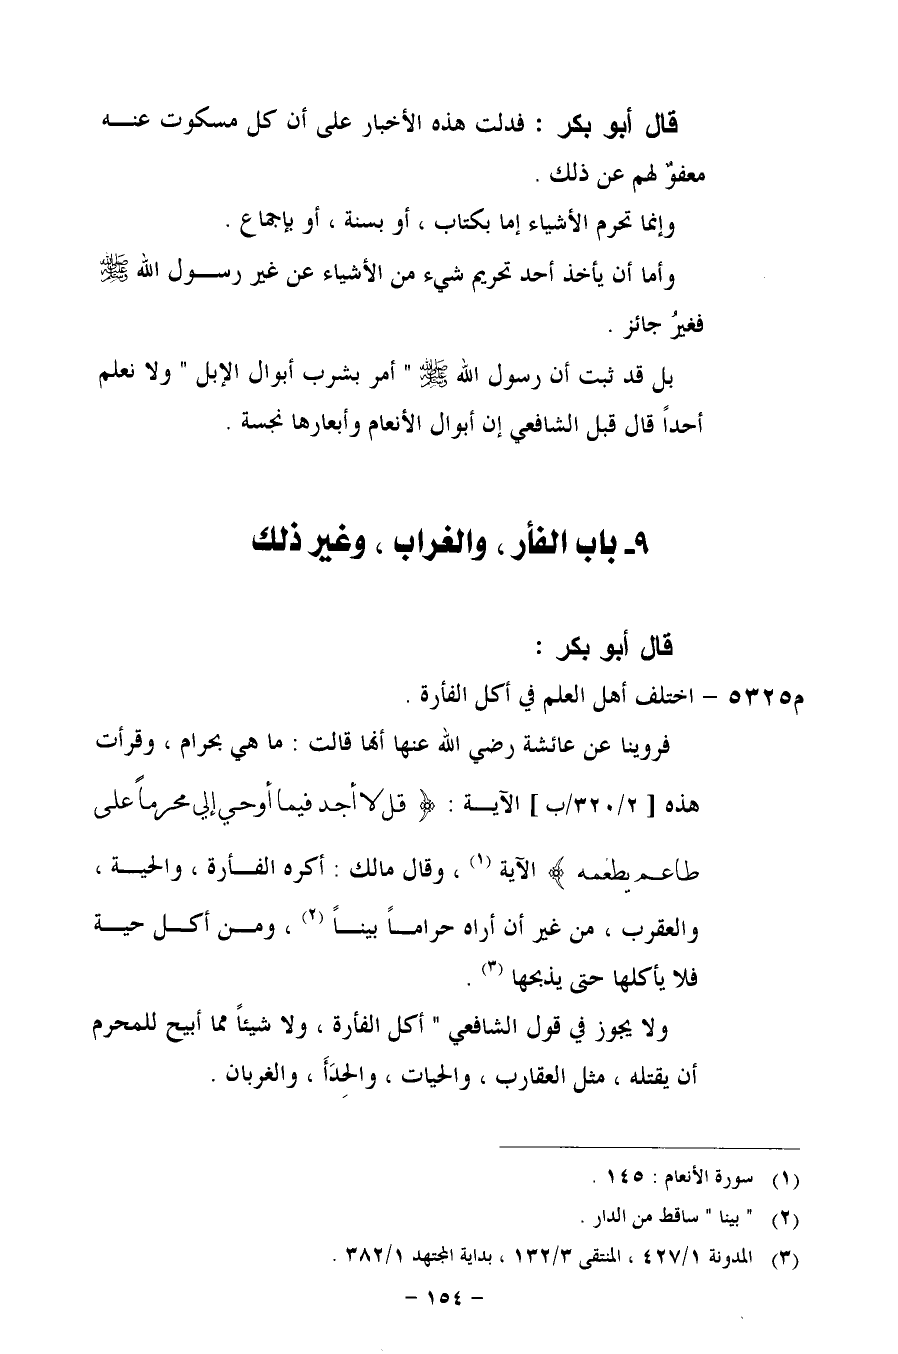 قال أبو بكر : فدلت هذه الأخبار على أن كل مسكوت عنـــه
معفوٌ لهم عن ذلك .
وإنما تحرم الأشياء إما بكتاب ، أو بسنة ، أو بإجماع .
وأما أن يأخذ أحد تحريم شيء من الأشياء عن غير رســـول الله ﷺ
فغيرُ جائز .
بل قد ثبت أن رسول الله ﷺ " أمر بشرب أبوال الإبل " ولا نعلم
أحداً قال قبل الشافعي إن أبوال الأنعام وأبعارها نجسة .
٩ـ باب الفأر ، والغراب ، وغير ذلك
قال أبو بكر :
م٥٣٢٥ – اختلف أهل العلم في أكل الفأرة .
فروينا عن عائشة رضي الله عنها أنها قالت : ما هي بحرام ، وقرأت
هذه [ ٣٢٠/٢/ب ] الآيـــة : ﴿ قل لا أجد فيما أوحي إلي محرماً على
طاعــم يطعمه ﴾ الآية (١) ، وقال مالك : أكره الفـــأرة ، والحيـــة ،
والعقرب ، من غير أن أراه حرامـــاً بينـــاً (٢) ، ومـــن أكـــل حيـة
فلا يأكلها حتى يذبحها (٣) .
ولا يجوز في قول الشافعي " أكل الفأرة ، ولا شيئاً مما أبيح للمحرم
أن يقتله ، مثل العقارب ، والحيات ، والحِدَأَ ، والغربان .
(١) سورة الأنعام : ١٤٥ .
(٢) " بينا " ساقط من الدار .
(٣) المدونة ٤٢٧/١ ، المنتقى ١٣٢/٣ ، بداية المجتهد ٣٨٢/١ .
– ١٥٤ –